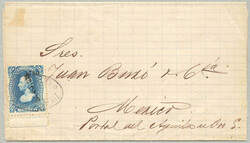 Sres.
Juan Busó & Cía
Mexico
Portal del Aguila de Oro 5.